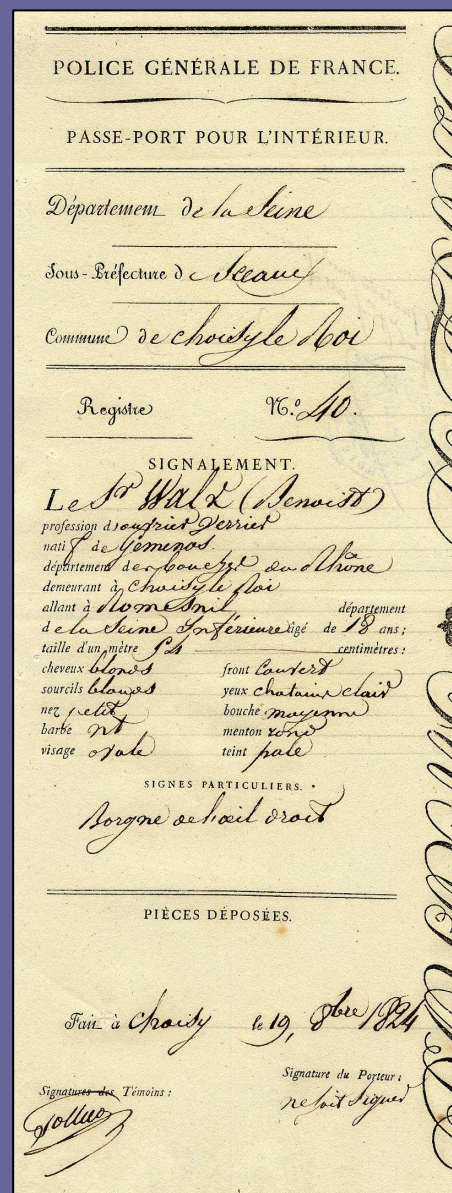 POLICE GÉNÉRALE DE FRANCE.
PASSE-PORT POUR L'INTÉRIEUR.
Département de la Seine
Sous-Préfecture d Sceaux
Commune de choisy le Roi
Registre N.º 40.
SIGNALEMENT.
Le Sr Walz (Benoist)
profession d'ouvrier Verrier
natif de Gemenos.
département des bouches du Rhône
demeurant à Choisy le Roi
allant à Romesnil, département
de la Seine Inférieure âgé de 18 ans;
taille d'un mètre 54 centimètres:
cheveux blonds front Couvert
sourcils blonds yeux chataine clair
nez petit bouche moyenne
barbe nt menton rond
visage ovale teint pale
SIGNES PARTICULIERS.
Borgne de l'œil droit
PIÈCES DÉPOSÉES.
Fait à Choisy le 19, 8bre 1824
Signatures des Témoins: Signature du Porteur:
ne Sait Signer